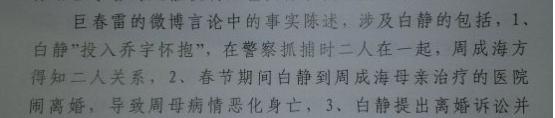 巨春雷的微博言论中的事实陈述，涉及白静的包括，1、
白静”投入乔宇怀抱”，在警察抓捕时二人在一起，周成海方
得知二人关系，2、春节期间白静到周成海母亲治疗的医院
闹离婚，导致周母病情恶化身亡，3、白静提出离婚诉讼并